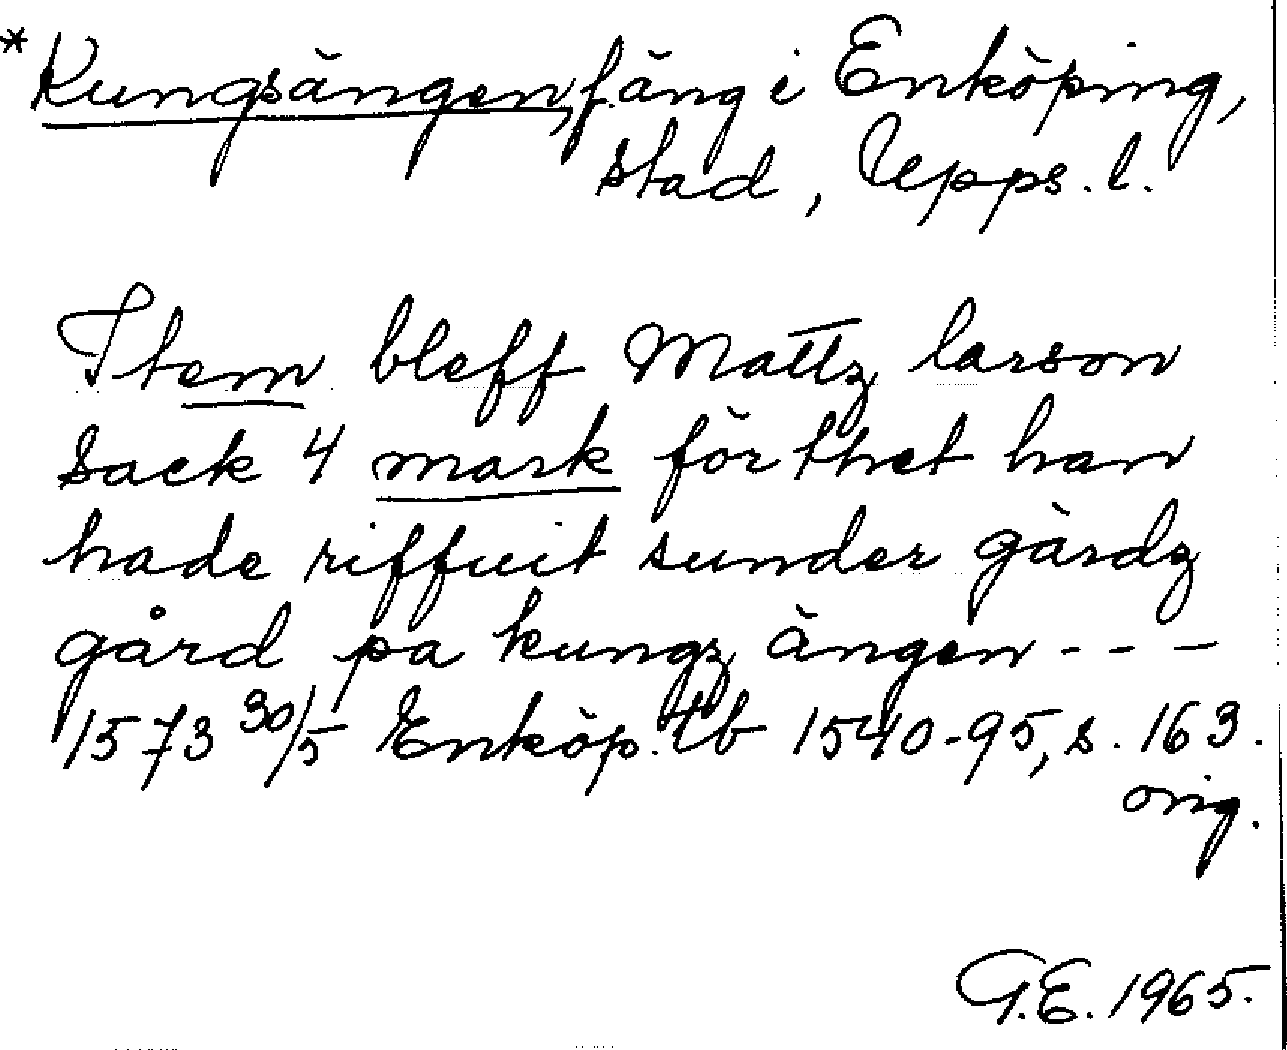 *Kungsängen, f. äng i Enköping,
stad, Upps. l.
Item bleff Mattz larson
sack 4 mark för thet han
hade riffuit sunder gärdz
gård pa kungz ängen - - -
1573 30/5 Enköp. tb 1540-95, s. 163.
orig.
G.E. 1965.